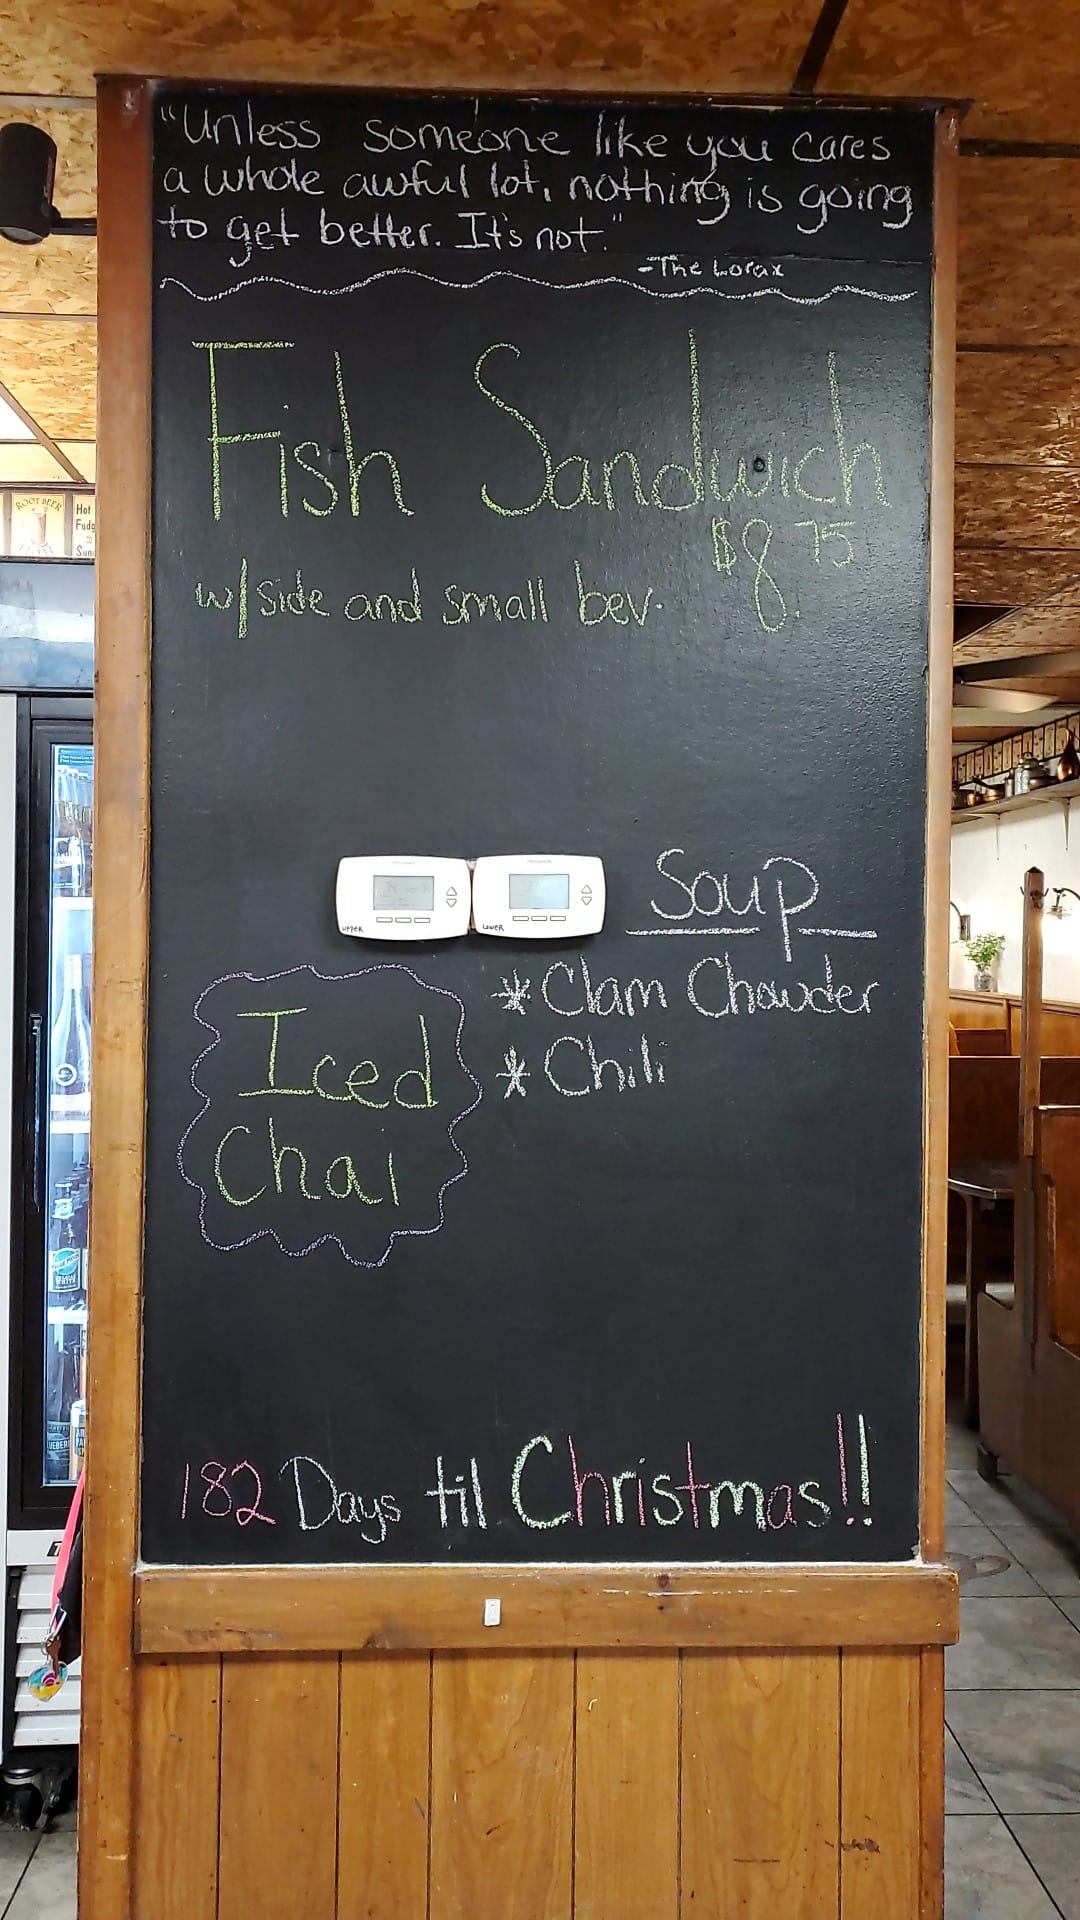 "Unless someone like you cares
a whole awful lot, nothing is going
to get better. It's not."
-The Lorax
Fish Sandwich
$8.75
w/side and small bev.
ROOT BEER
Hot
Fudg
Sund
UPPER
LOWER
Soup
* Clam Chowder
* Chili
Iced
Chai
182 Days til Christmas!!